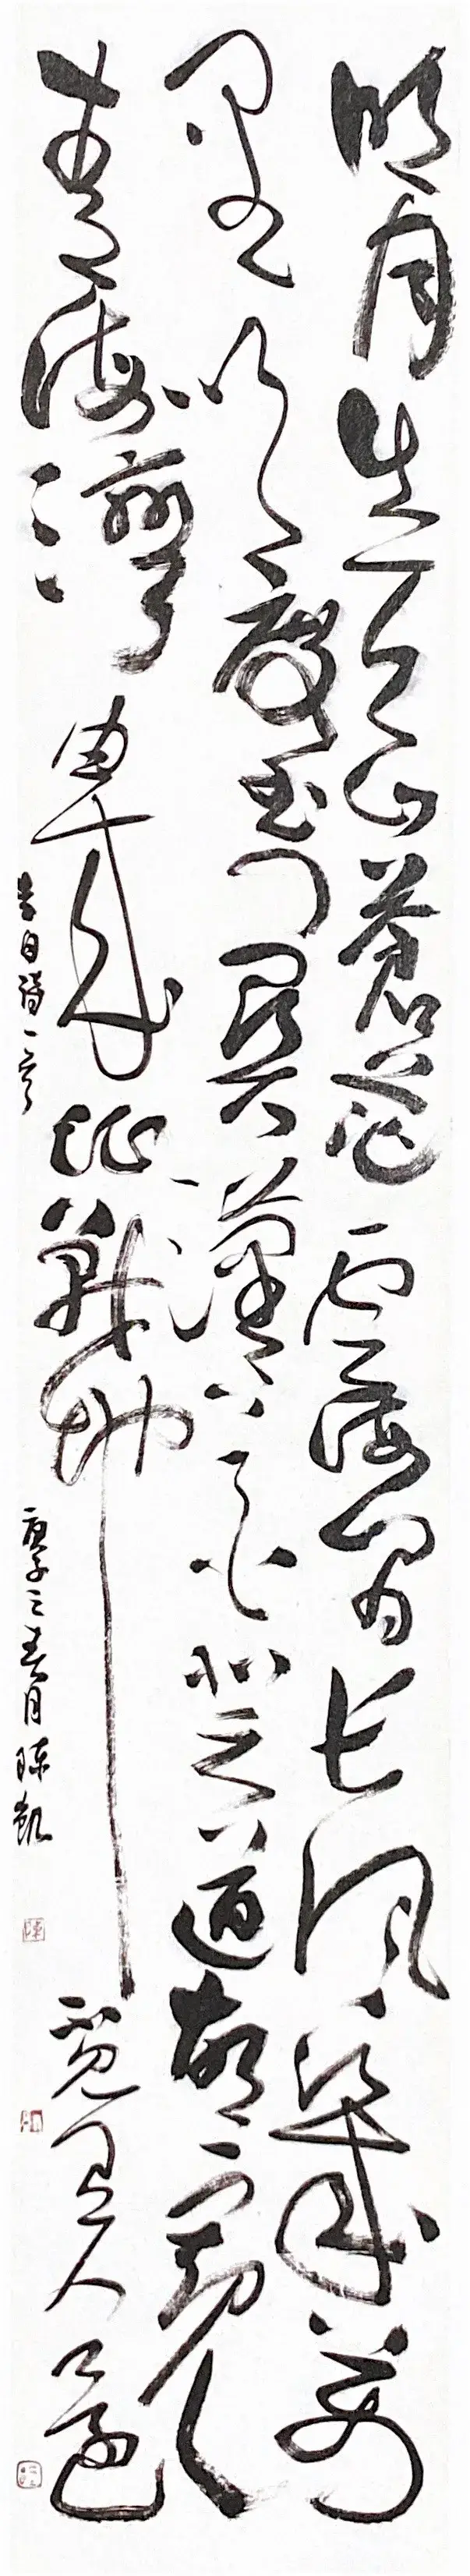 明月出天山蒼茫雲海間長風幾萬
里吹度玉門關漢下白登道胡窺
青海灣由來征戰地不見有人還
李白詩一首
庚子之春月陳凱